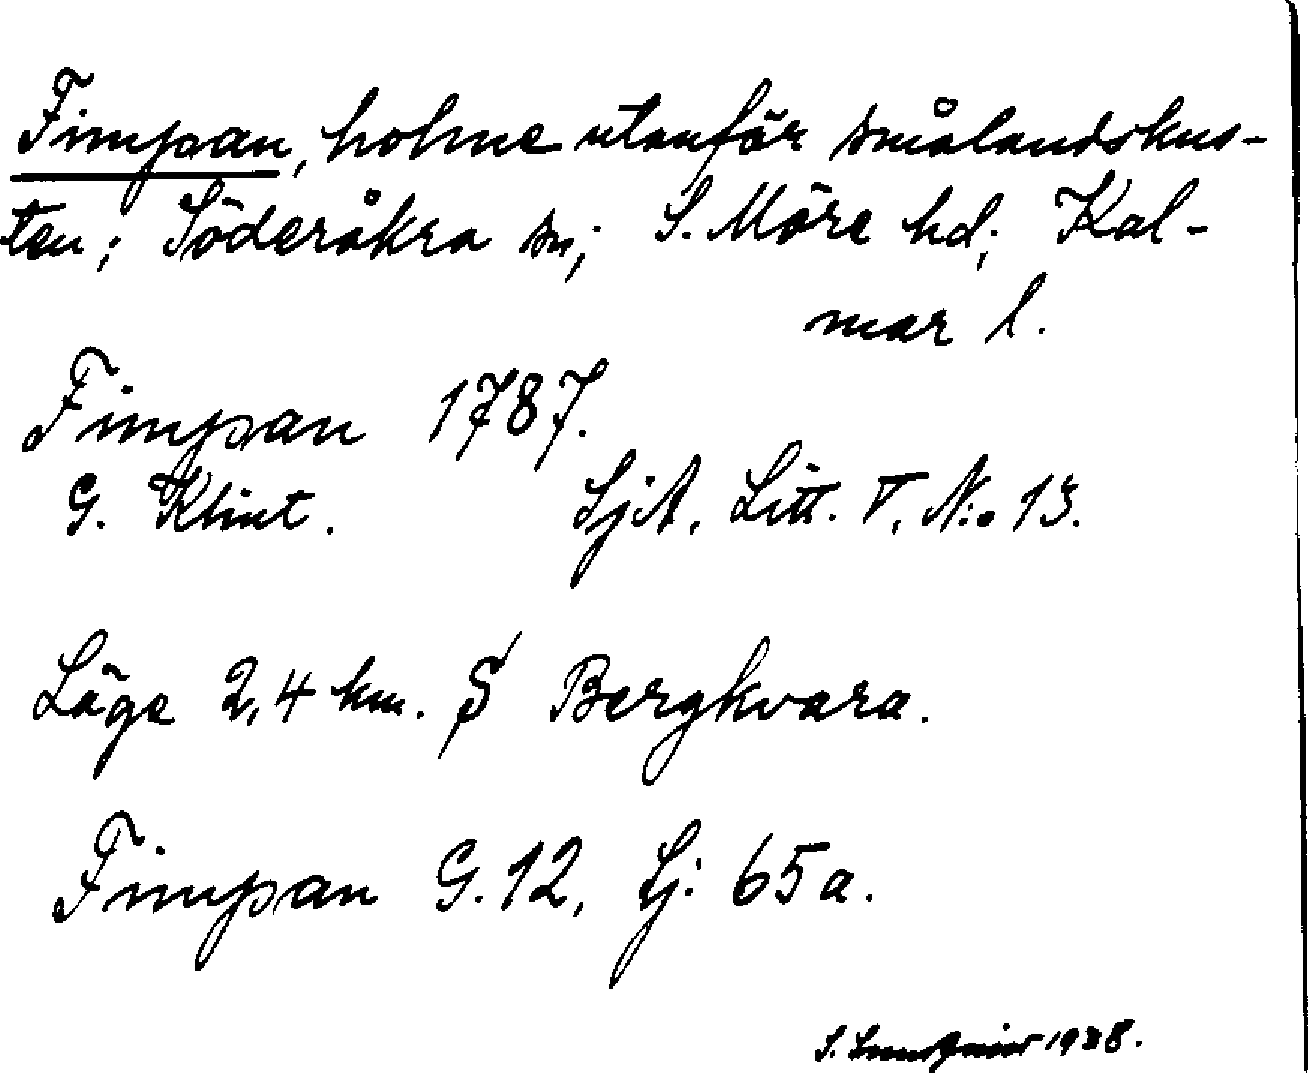 Fimpan, holme utanför smålandskus-
ten; Söderåkra sn; S. Möre hd; Kal-
mar l.
Fimpan 1787.
G. Klint. SjA. Litt. V. N:o 13.
Läge 2,4 km. S Bergkvara.
Fimpan G. 12, Sj: 65a.
S. 1938.